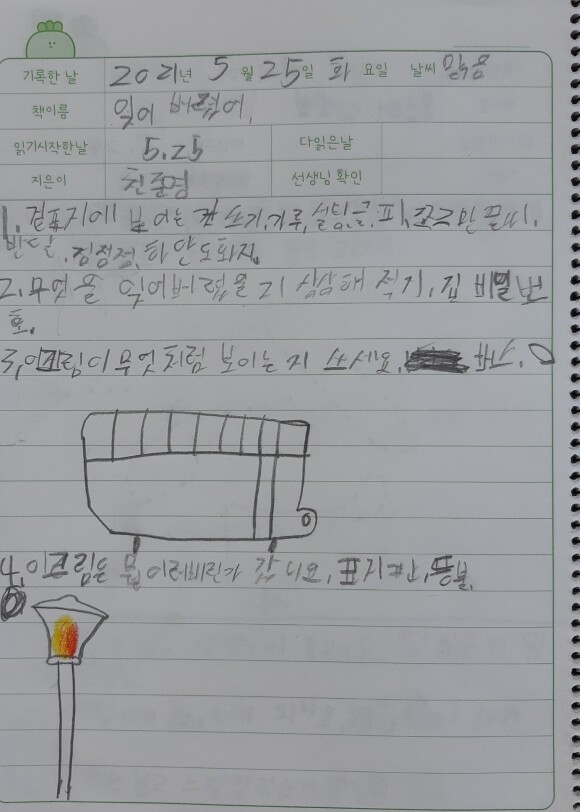 기록한 날 2021년 5월 25일 화요일 날씨 맑음
책이름 잊어 버렸어.
읽기시작한날 5.25 다읽은날
지은이 천준영 선생님 확인
1. 겉표지에 보이는 것 쓰기. 가루, 설탕, 글, 피, 조그만 글씨,
반달, 검정점, 하얀도화지.
2. 무엇을 잊어버렸을지 상상해 적기, 집 비밀번
호.
3. 이그림이 무엇처럼 보이는지 쓰세요. 버스.
4. 이그림은 이러버린가 갑니요, 표지판, 등불.